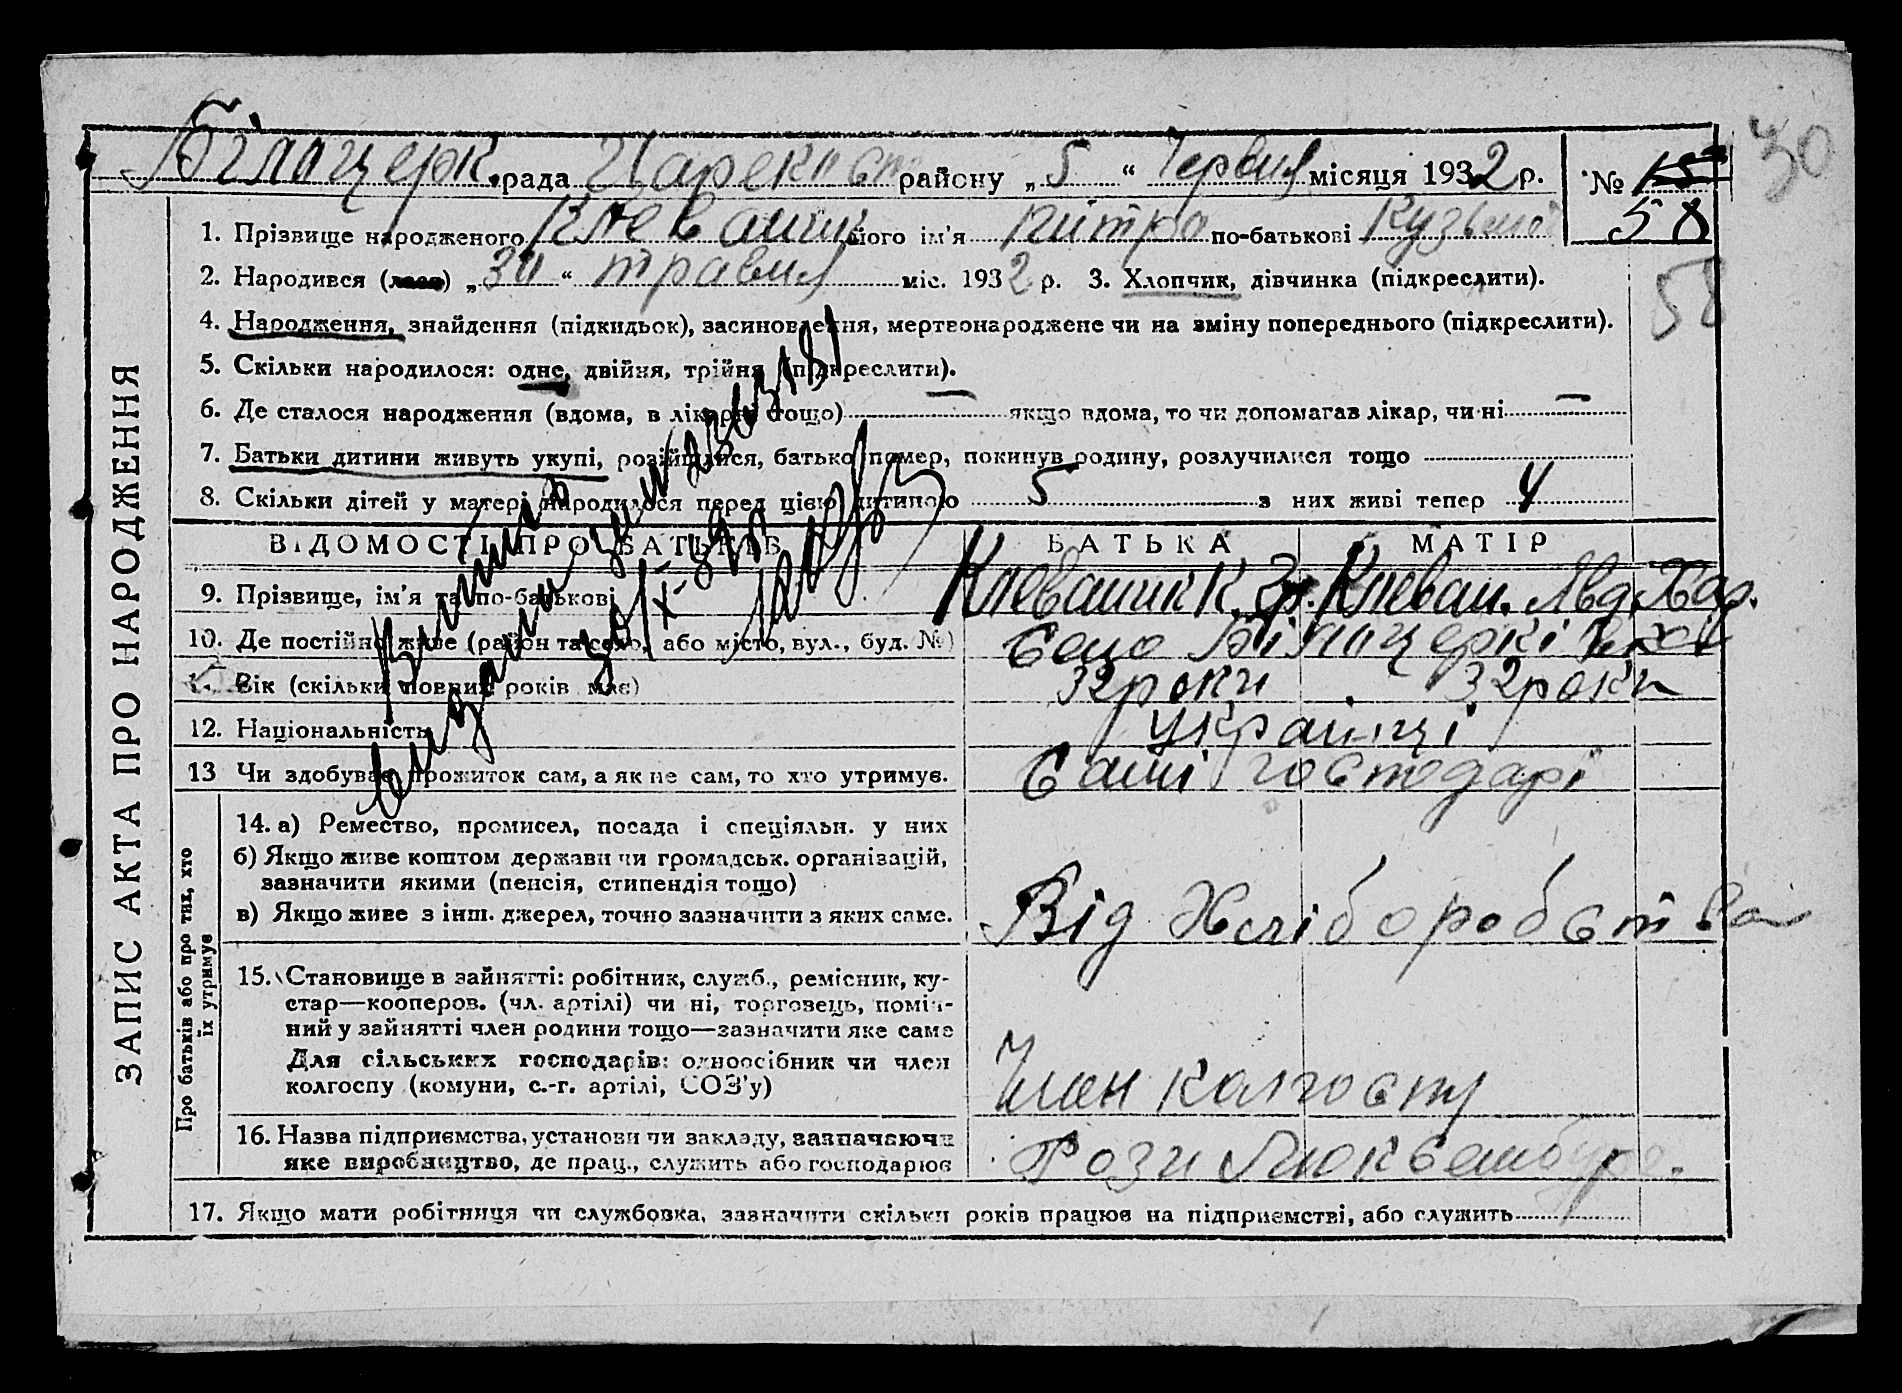 30
Білоцерк. рада район у „ 5 “ Червня місяця 1932 р. № 153
58
1. Прізвище народженого його ім'я по-батькові
2. Народився (лася) „ 30 “ травня міс. 1932 р. 3. Хлопчик, дівчинка (підкреслити).
58
4. Народження, знайдення (підкидьок), засиновлення, мертвонароджене чи на зміну попереднього (підкреслити).
5. Скільки народилося: одне, двійня, трійня (підкреслити).
6. Де сталося народження (вдома, в лікарні тощо) — якщо вдома, то чи допомагав лікар, чи ні —
7. Батьки дитини живуть укупі, розійшлися, батько помер, покинув родину, розлучилися тощо
8. Скільки дітей у матері народилося перед цією дитиною 5 з них живі тепер 4
ВІДОМОСТІ ПРО БАТЬКІВ БАТЬКА МАТІР
9. Прізвище, ім'я та по-батькові
10. Де постійно живе (район та село, або місто, вул., буд. №) Село Білоцерківка
11. Вік (скільки повних років має) 32 роки 32 роки
12. Національність українці
13 Чи здобуває прожиток сам, а як не сам, то хто утримує. Самі господарі
14. а) Ремество, промисел, посада і спеціяльн. у них
б) Якщо живе коштом держави чи громадськ. організацій,
зазначити якими (пенсія, стипендія тощо)
в) Якщо живе з інш. джерел, точно зазначити з яких саме. Від Хліборобства
15. Становище в зайнятті: робітник, служб., ремісник, ку-
стар—кооперов. (чл. артілі) чи ні, торговець, поміч-
ний у зайнятті член родини тощо—зазначити яке саме
Для сільських господарів: одноосібник чи член
колгоспу (комуни, с.-г. артілі, СОЗ'у) Член колгоспу
16. Назва підприємства, установи чи закладу, зазначаючи
яке виробництво, де прац., служить або господарює Рози Люксембург.
17. Якщо мати робітниця чи службовка, зазначити скільки років працює на підприємстві, або служить
ЗАПИС АКТА ПРО НАРОДЖЕННЯ
Про батьків або про тих, хто
їх утримує